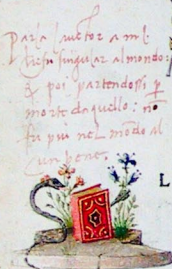 Parla lauctor a m l
ben singular al mondo:
& poi partendosi p
morte daquello: no
fu piu nel modo al
cun bene.
L